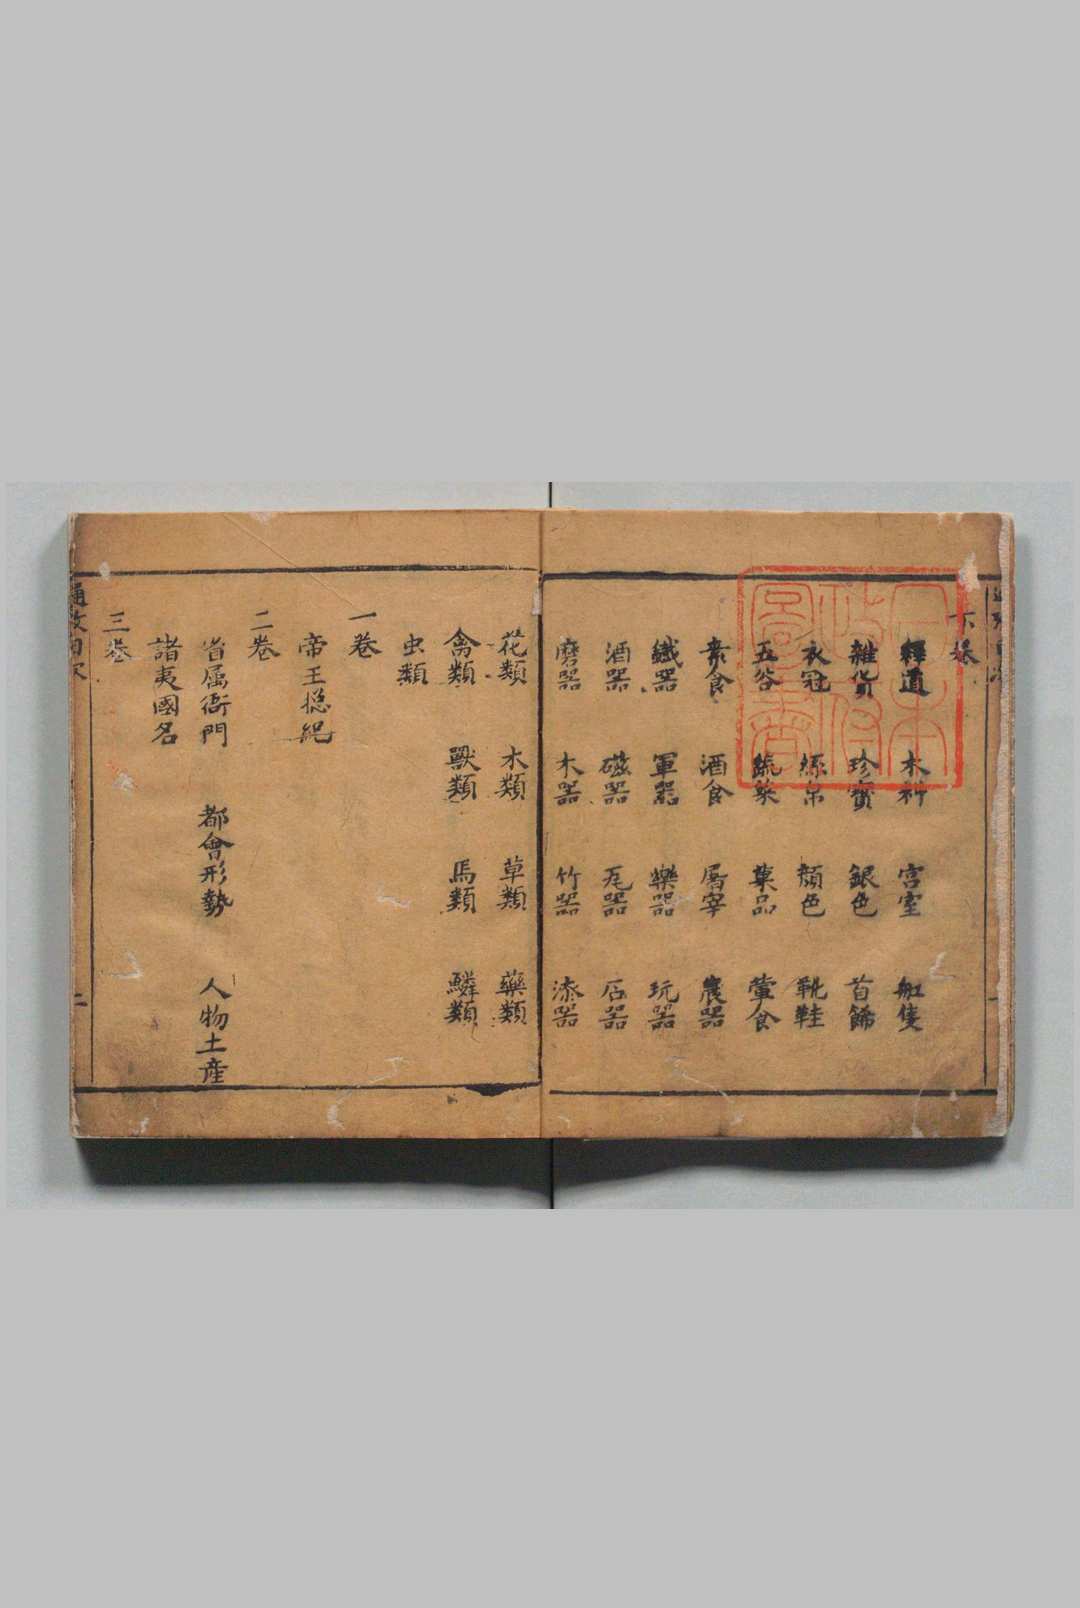 下卷
釋道 木料 宮室 舡隻
雜貨 珍寶 銀色 首飾
衣冠 絲帛 顏色 靴鞋
五谷 蔬菜 菓品 葷食
素食 酒食 屠宰 農器
鐵器 軍器 樂器 玩器
酒器 磁器 瓦器 石器
磨器 木器 竹器 漆器
花類 木類 草類 藥類
禽類 獸類 馬類 鱗類
虫類
一卷
帝王総紀
二卷
省属衙門 都會形勢 人物土産
諸夷國名
三卷
通攷目次 二